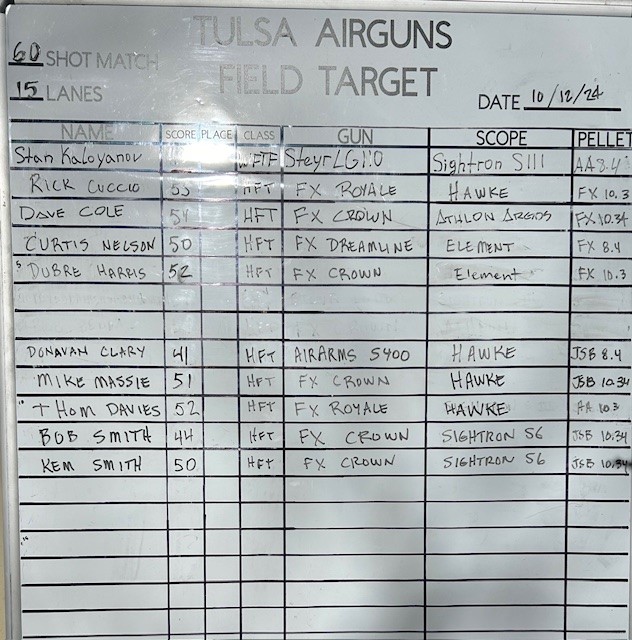 TULSA AIRGUNS
60 SHOT MATCH FIELD TARGET
15 LANES DATE 10/12/24
NAME SCORE PLACE CLASS GUN SCOPE PELLET
Stan Kaloyanov WFTF Steyr LG110 Sightron SIII AA 8.4
RICK CUCCIO 53 HFT FX ROYALE HAWKE FX 10.3
DAVE COLE HFT FX CROWN ATHLON ARGOS FX 10.34
CURTIS NELSON 50 HFT FX DREAMLINE ELEMENT FX 8.4
DUBRE HARRIS 52 HFT FX CROWN Element FX 10.3
DONAVAN CLARY 41 HFT AIRARMS S400 HAWKE JSB 8.4
MIKE MASSIE 51 HFT FX CROWN HAWKE JSB 10.34
THOM DAVIES 52 HFT FX ROYALE HAWKE AA 10.3
BOB SMITH 44 HFT FX CROWN SIGHTRON S6 JSB 10.34
KEM SMITH 50 HFT FX CROWN SIGHTRON S6 JSB 10.34